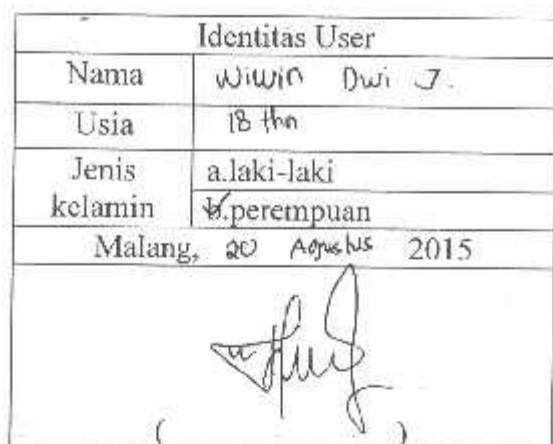 Identitas User
Nama Wiwin Dwi J.
Usia 18 thn
Jenis kelamin a.laki-laki
b.perempuan
Malang, 20 Agustus 2015
( )